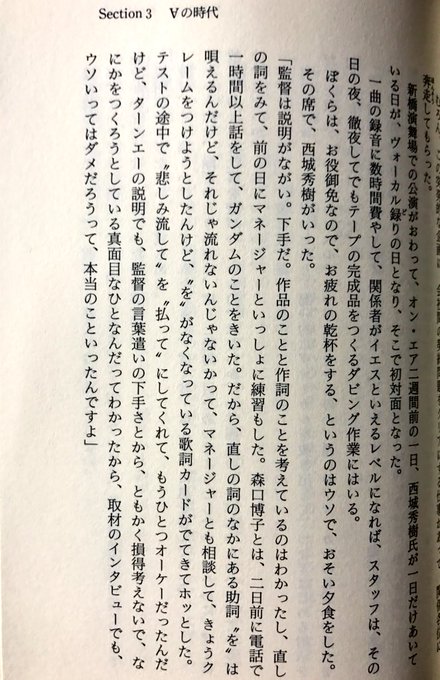 Section 3　∀の時代
奔走してもらった。
新橋演舞場での公演がおわって、オン・エア二週間前の一日、西城秀樹氏が一日だけあいて
いる日が、ヴォーカル録りの日となり、そこで初対面となった。
一曲の録音に数時間費やして、関係者がイエスといえるレベルになれば、スタッフは、その
日の夜、徹夜してでもテープの完成品をつくるダビング作業にはいる。
ぼくらは、お役御免なので、お疲れの乾杯をする、というのはウソで、おそい夕食をした。
その席で、西城秀樹がいった。
「監督は説明がながい。下手だ。作品のことと作詞のことを考えているのはわかったし、直し
の詞をみて、前の日にマネージャーといっしょに練習もした。森口博子とは、二日前に電話で
一時間以上話をして、ガンダムのことをきいた。だから、直しの詞のなかにある助詞〝を〟は
唄えるんだけど、それじゃ流れないんじゃないかって、マネージャーとも相談して、きょうク
レームをつけようとしたんけど、〝を〟がなくなっている歌詞カードがでてきてホッとした。
テストの途中で〝悲しみ流して〟を〝払って〟にしてくれて、もうひとつオーケーだったんだ
けど、ターンエーの説明でも、監督の言葉遣いの下手さとから、ともかく損得考えないで、な
にかをつくろうとしている真面目なひとなんだってわかったから、取材のインタビューでも、
ウソいってはダメだろうって、本当のこといったんですよ」